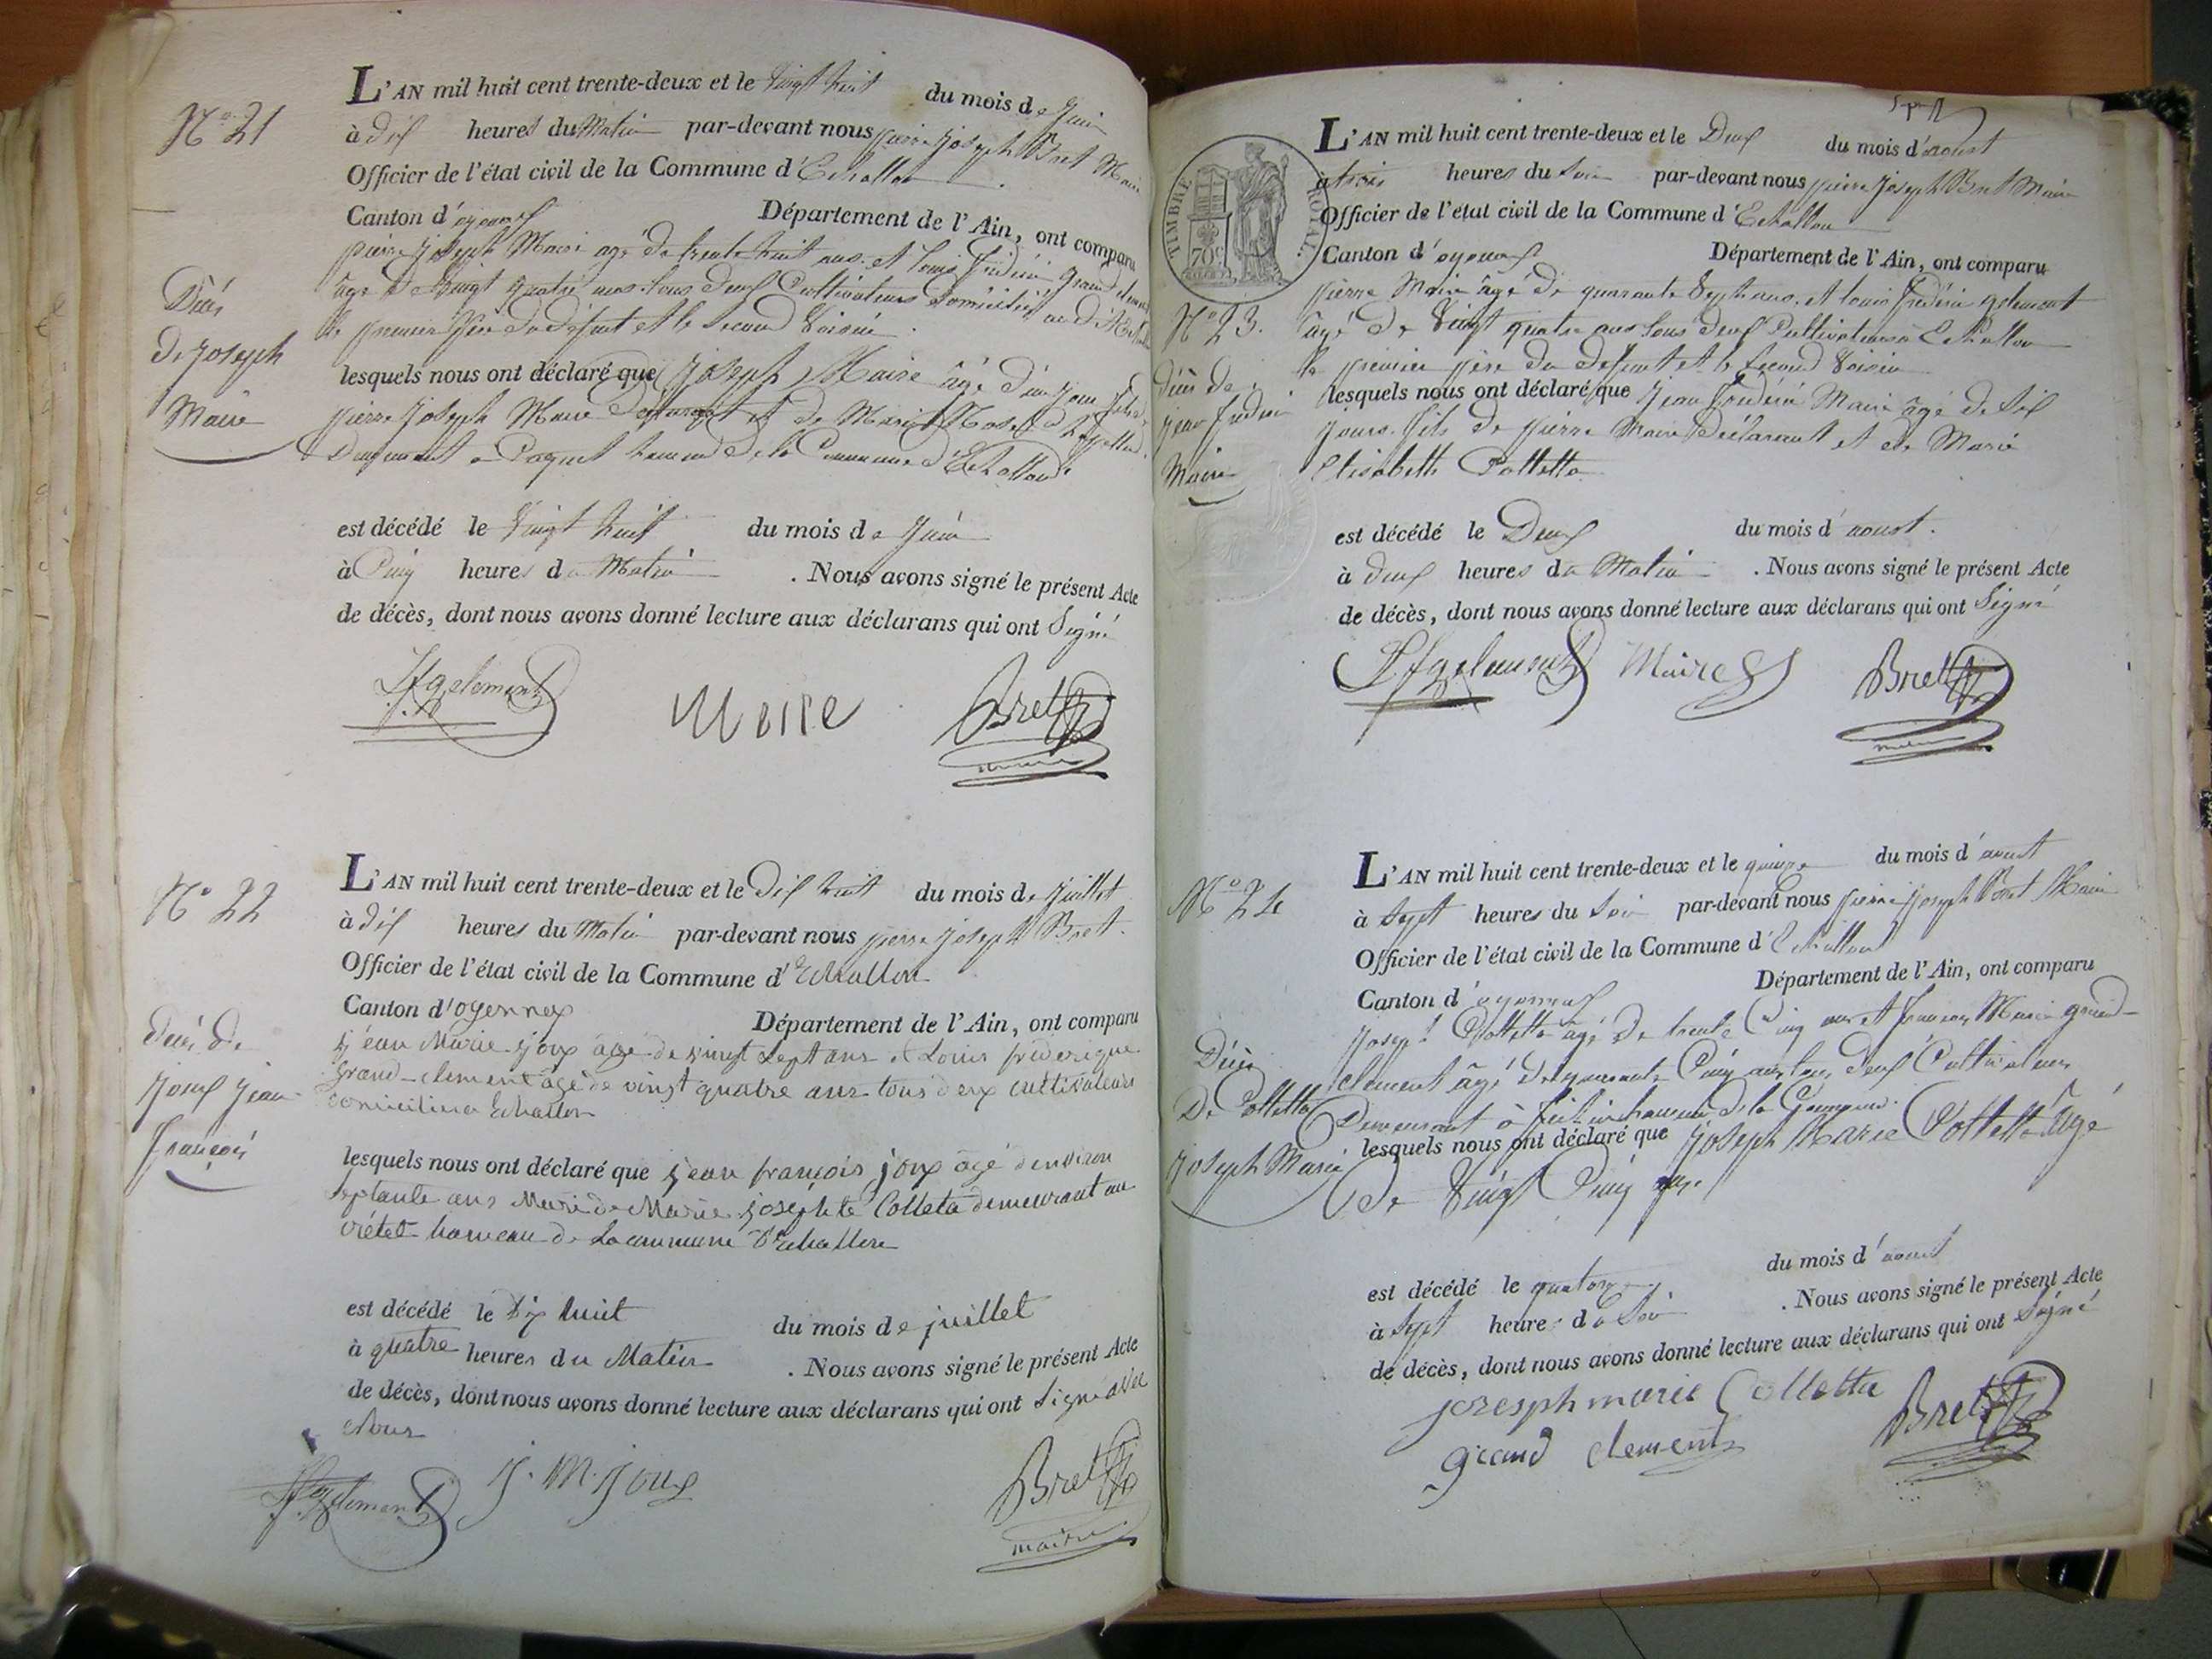 N.° 21
L'AN mil huit cent trente-deux et le vingt huit du mois de Juin
à dix heures du Matin par-devant nous pierre joseph Bret Maire
Officier de l'état civil de la Commune d'Echallon
Canton d'oyonnax Département de l'Ain, ont comparu
pierre joseph Maire agé de trente huit ans et louis frédéric grand clement
âgé de Vingt quatre ans tous deux Cultivateurs domiciliés
le premier père du défunt et le Second Voisin
Décès
de joseph
Maire
lesquels nous ont déclaré que joseph Maire âgé d'un jour fils de
pierre joseph Maire déclarant et de Marie
demeurant a hameau de la Commune d'Echallon
est décédé le vingt huit du mois de Juin
à Cinq heures du Matin . Nous avons signé le présent Acte
de décès, dont nous avons donné lecture aux déclarans qui ont Signé
L f g clement Maire Bret
maire
N° 22
L'AN mil huit cent trente-deux et le Dix huit du mois de Juillet
à dix heures du Matin par-devant nous pierre joseph Bret
Officier de l'état civil de la Commune d'Echallon
Canton d'oyonnax Département de l'Ain, ont comparu
jean Marie joux âgé de vingt Sept ans et Louis frederique
grand-clement âgé de vingt quatre ans tous deux cultivateurs
domiciliés a Echallon
décès de
joux jean
françois
lesquels nous ont déclaré que jean françois joux âgé d'environ
septante ans Mari de Marie josephte Colleta demeurant au
crétet hameau de La commune d'Echallon
est décédé le dix huit du mois de juillet
à quatre heures du Matin . Nous avons signé le présent Acte
de décès, dont nous avons donné lecture aux déclarans qui ont Signé avec
Nous
L f g clement J. M. Joux Bret
maire
TIMBRE ROYAL
70c
L'AN mil huit cent trente-deux et le Deux du mois d'aoust
à trois heures du Soir par-devant nous pierre joseph Bret Maire
Officier de l'état civil de la Commune d'Echallon
Canton d'oyonnax Département de l'Ain, ont comparu
pierre Maire âgé de quarante Sept ans et louis frédéric gclement
âgé de Vingt quatre ans tous deux Cultivateurs a Echallon
le premier père du défunt et le Second Voisin
N° 23.
décès de
jean frédéric
Maire
lesquels nous ont déclaré que jean frédéric Maire âgé de Six
jours fils de pierre Maire déclarant et de Marie
Elisabette Colletta
est décédé le Deux du mois d'aoust.
à deux heures du Matin . Nous avons signé le présent Acte
de décès, dont nous avons donné lecture aux déclarans qui ont Signé
L. f g clement Maire Bret
maire
N° 24
L'AN mil huit cent trente-deux et le quinze du mois d'aoust
à Sept heures du Soir par-devant nous pierre joseph Bret Maire
Officier de l'état civil de la Commune d'Echallon
Canton d'oyonnax Département de l'Ain, ont comparu
joseph Colletta âgé de trente Cinq ans et françois Marie grand-
clement âgé de quarante Cinq ans tous deux Cultivateurs
Demeurant à hameau de la Commune
Décès
De Colletta
joseph Marie
lesquels nous ont déclaré que joseph Marie Colletta âgé
de Vingt Cinq ans
est décédé le quatorze du mois d'aoust
à Sept heures du Soir . Nous avons signé le présent Acte
de décès, dont nous avons donné lecture aux déclarans qui ont Signé
joresph marie Colletta Bret
grand clement